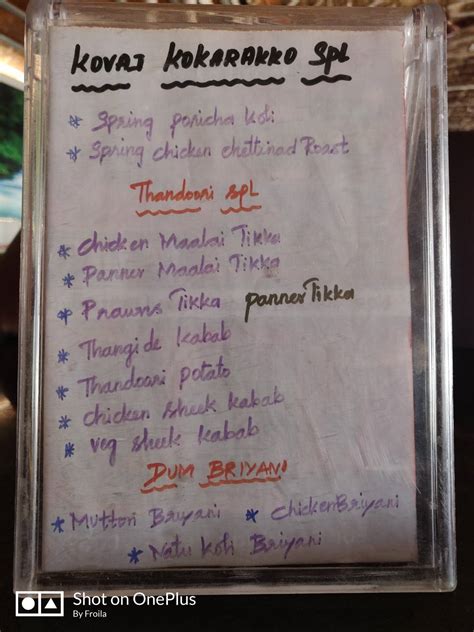 KOVAI KOKARAKKO SPL
* Spring poricha koli
* Spring chicken chettinad Roast
Thandoori SPL
* chicken Maalai Tikka
* Panner Maalai Tikka
* Prawns Tikka panner Tikka
* Thangide kabab
* Thandoori potato
* chicken sheek kabab
* veg sheek kabab
DUM BRIYANI
* Mutton Briyani * chicken Briyani
* Natu koli Briyani
Shot on OnePlus
By Froila